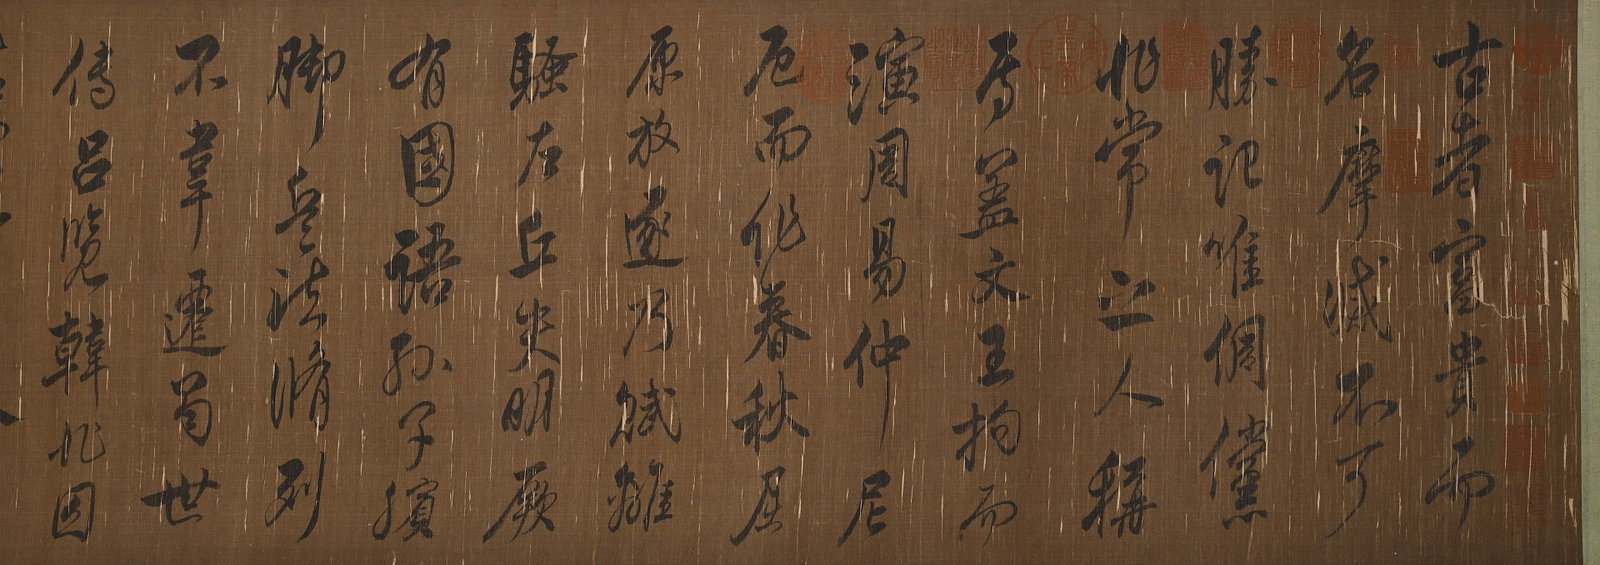 古者富貴而
名摩滅不可
勝記唯倜儻
非常之人稱
焉蓋文王拘而
演周易仲尼
厄而作春秋屈
原放逐乃賦離
騷左丘失明厥
有國語孫子臏
脚兵法脩列
不韋遷蜀世
傳呂覽韓非囚